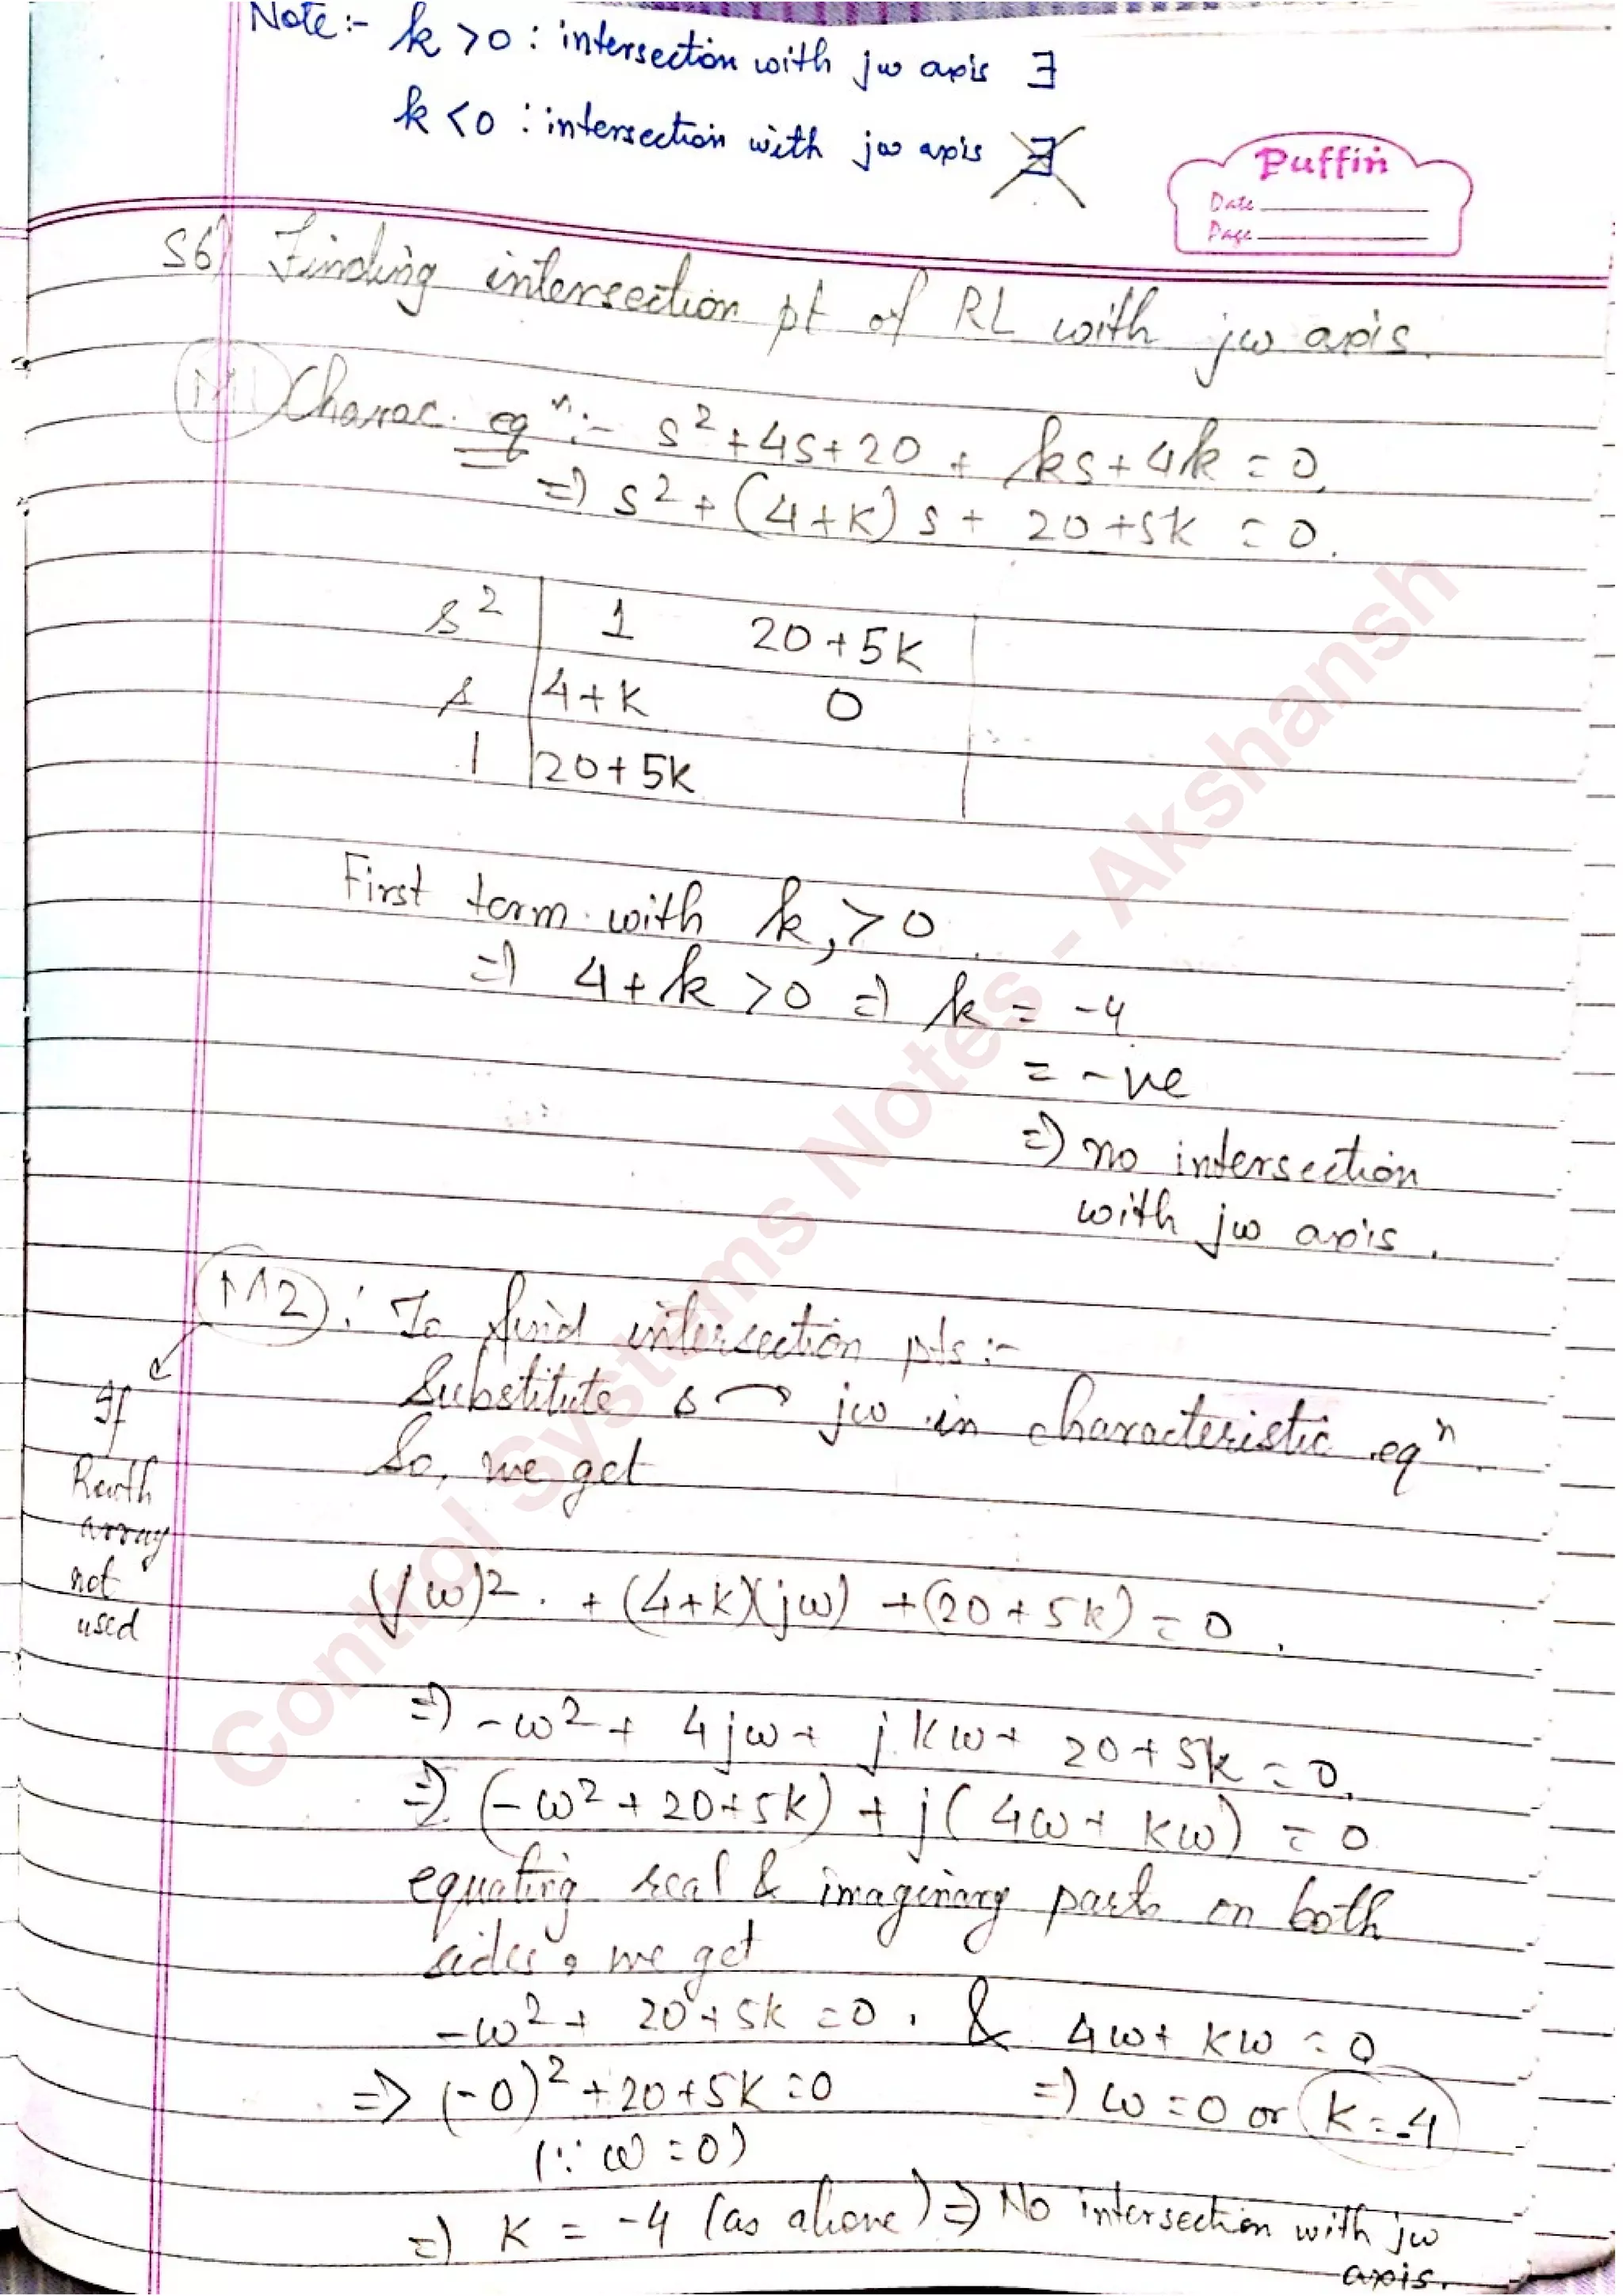 Note:- k > 0 : intersection with jω axis ∃
k < 0 : intersection with jω axis ∃
Puffin
Date
Page
S6) Finding intersection pt of RL with jω axis.
M1 Charac. eqⁿ:- s² + 4s + 20 + ks + 4k = 0.
=) s² + (4+K) s + 20 + 5K = 0.
s² | 1 20+5K
s | 4+K 0
1 | 20+5K
First term with k, > 0.
=) 4 + k > 0 =) k = -4
= -ve
=) no intersection
with jω axis.
M2 : To find intersection pts :-
Substitute s → jω in characteristic eqⁿ.
So, we get
If
Routh
array
not
used
(jω)² + (4+K)(jω) + (20+5K) = 0.
=) -ω² + 4jω + jKω + 20 + 5k = 0.
=) (-ω² + 20 + 5K) + j( 4ω + Kω) = 0
equating real & imaginary parts on both
sides, we get
-ω² + 20 + 5K = 0. & 4ω + Kω = 0
=> (-0)² + 20 + 5K = 0 =) ω = 0 or K = -4
(∵ ω = 0)
=) K = -4 (as above) => No intersection with jω
axis.
Control Systems Notes - Akshansh